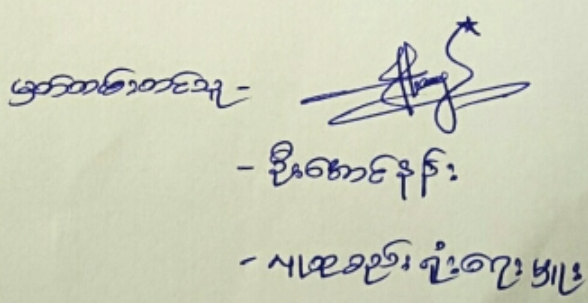 မှတ်တမ်းတင်သူ -
- ဦးအောင်နိုင်း
- ပထစည်းရုံးရေးမှူး